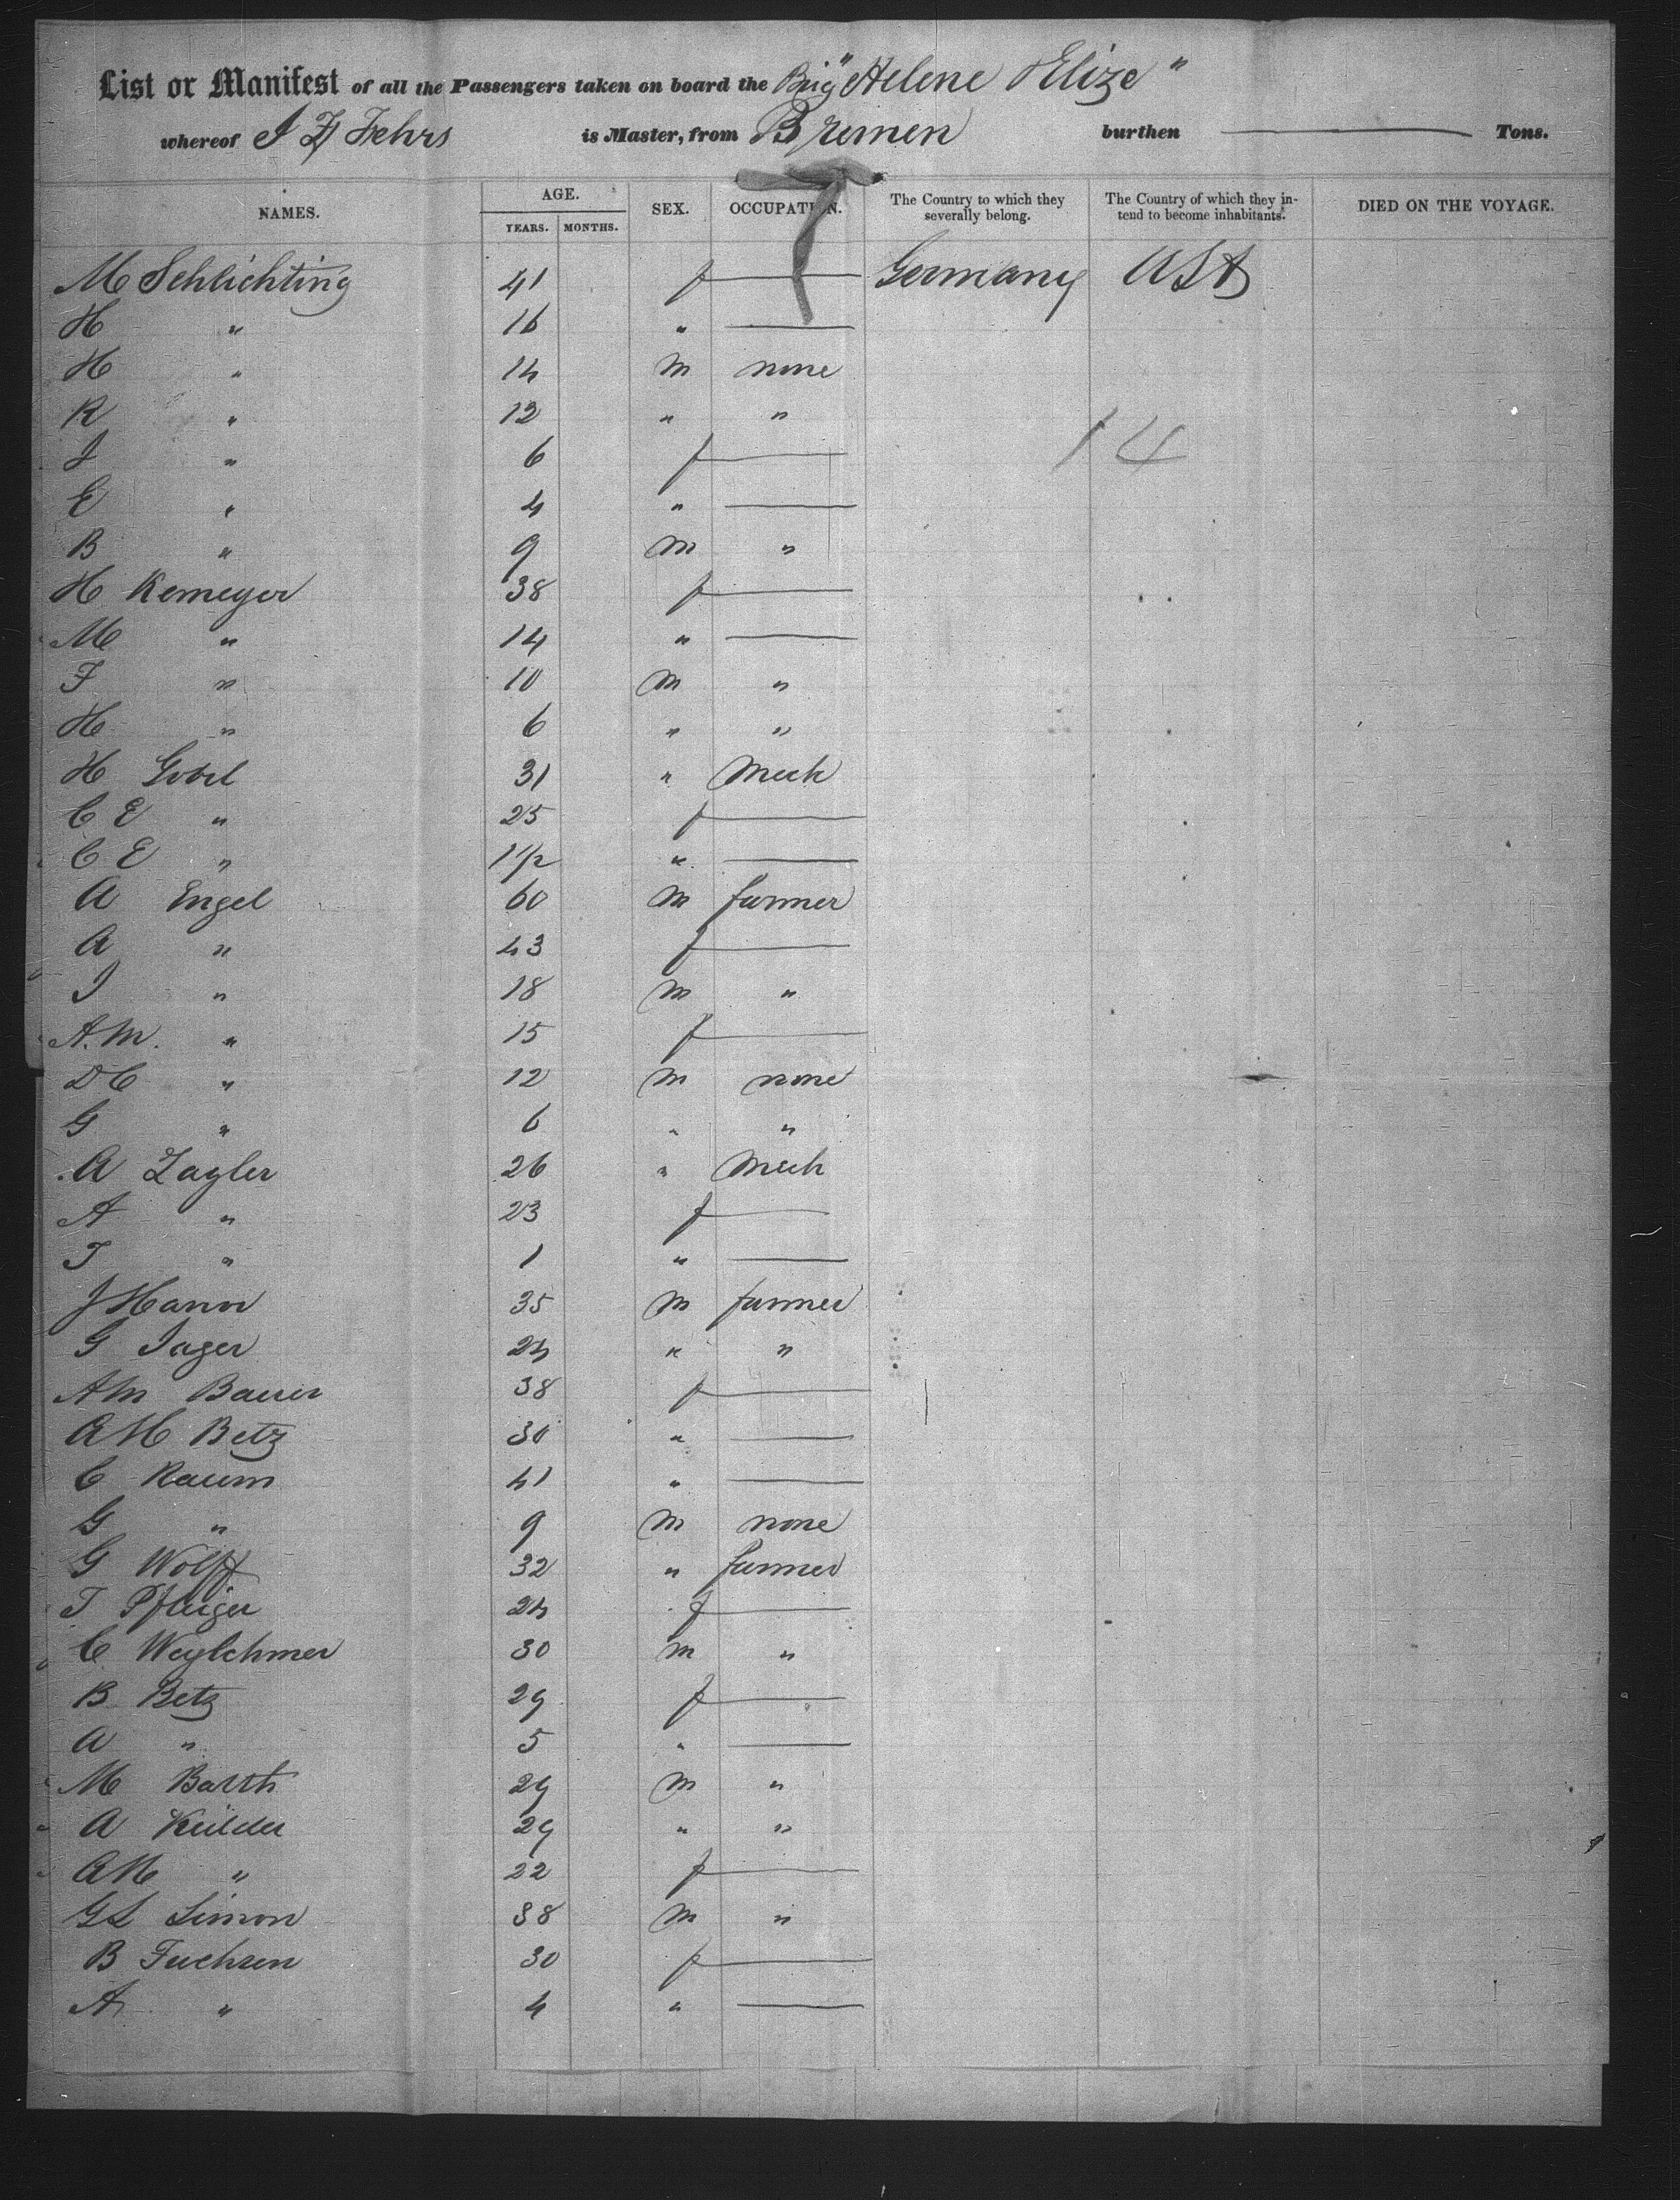 List or Manifest of all the Passengers taken on board the Brig "Helene & Elize"
whereof J Fehrs is Master, from Bremen burthen Tons.
NAMES. AGE. YEARS. MONTHS. SEX. OCCUPATION. The Country to which they severally belong. The Country of which they intend to become inhabitants. DIED ON THE VOYAGE.
M Schlichting 41 f — Germany USA
H " 16 " —
H " 14 m none
K " 12 " "
J " 6 f — 14
E " 4 " —
B " 9 m "
H Kemeyer 38 f —
M " 14 " —
F " 10 m "
H " 6 " "
H Gobel 31 " Mech
C E " 25 f —
C E " 1 1/2 " —
A Engel 60 m farmer
A " 43 f —
J " 18 m "
A.M. " 15 f —
D C " 12 m none
G " 6 " "
A Zagler 26 " Mech
A " 23 f —
T " 1 " —
J 35 m farmer
G Jager 24 " "
A M Bauer 38 f —
A M Betz 30 " —
C Raum 41 " —
G " 9 m none
G Wolff 32 " farmer
T 24 f —
C 30 m "
B Betz 29 f —
A " 5 " —
M Barth 29 m "
A 29 " "
A M " 22 f —
G L Simon 38 m "
B Fuchsen 30 f —
A " 4 " —